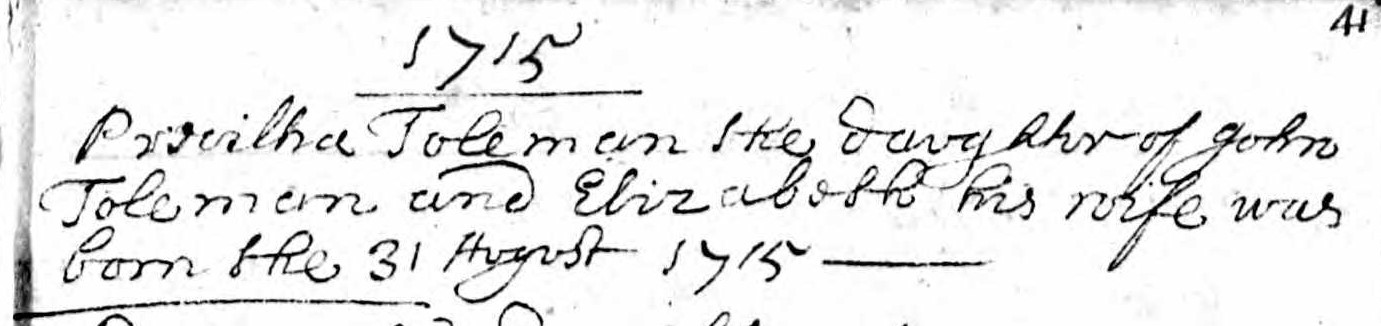 41
1715
Toleman the daughter of John
Toleman and Elizabeth his wife was
born the 31 August 1715